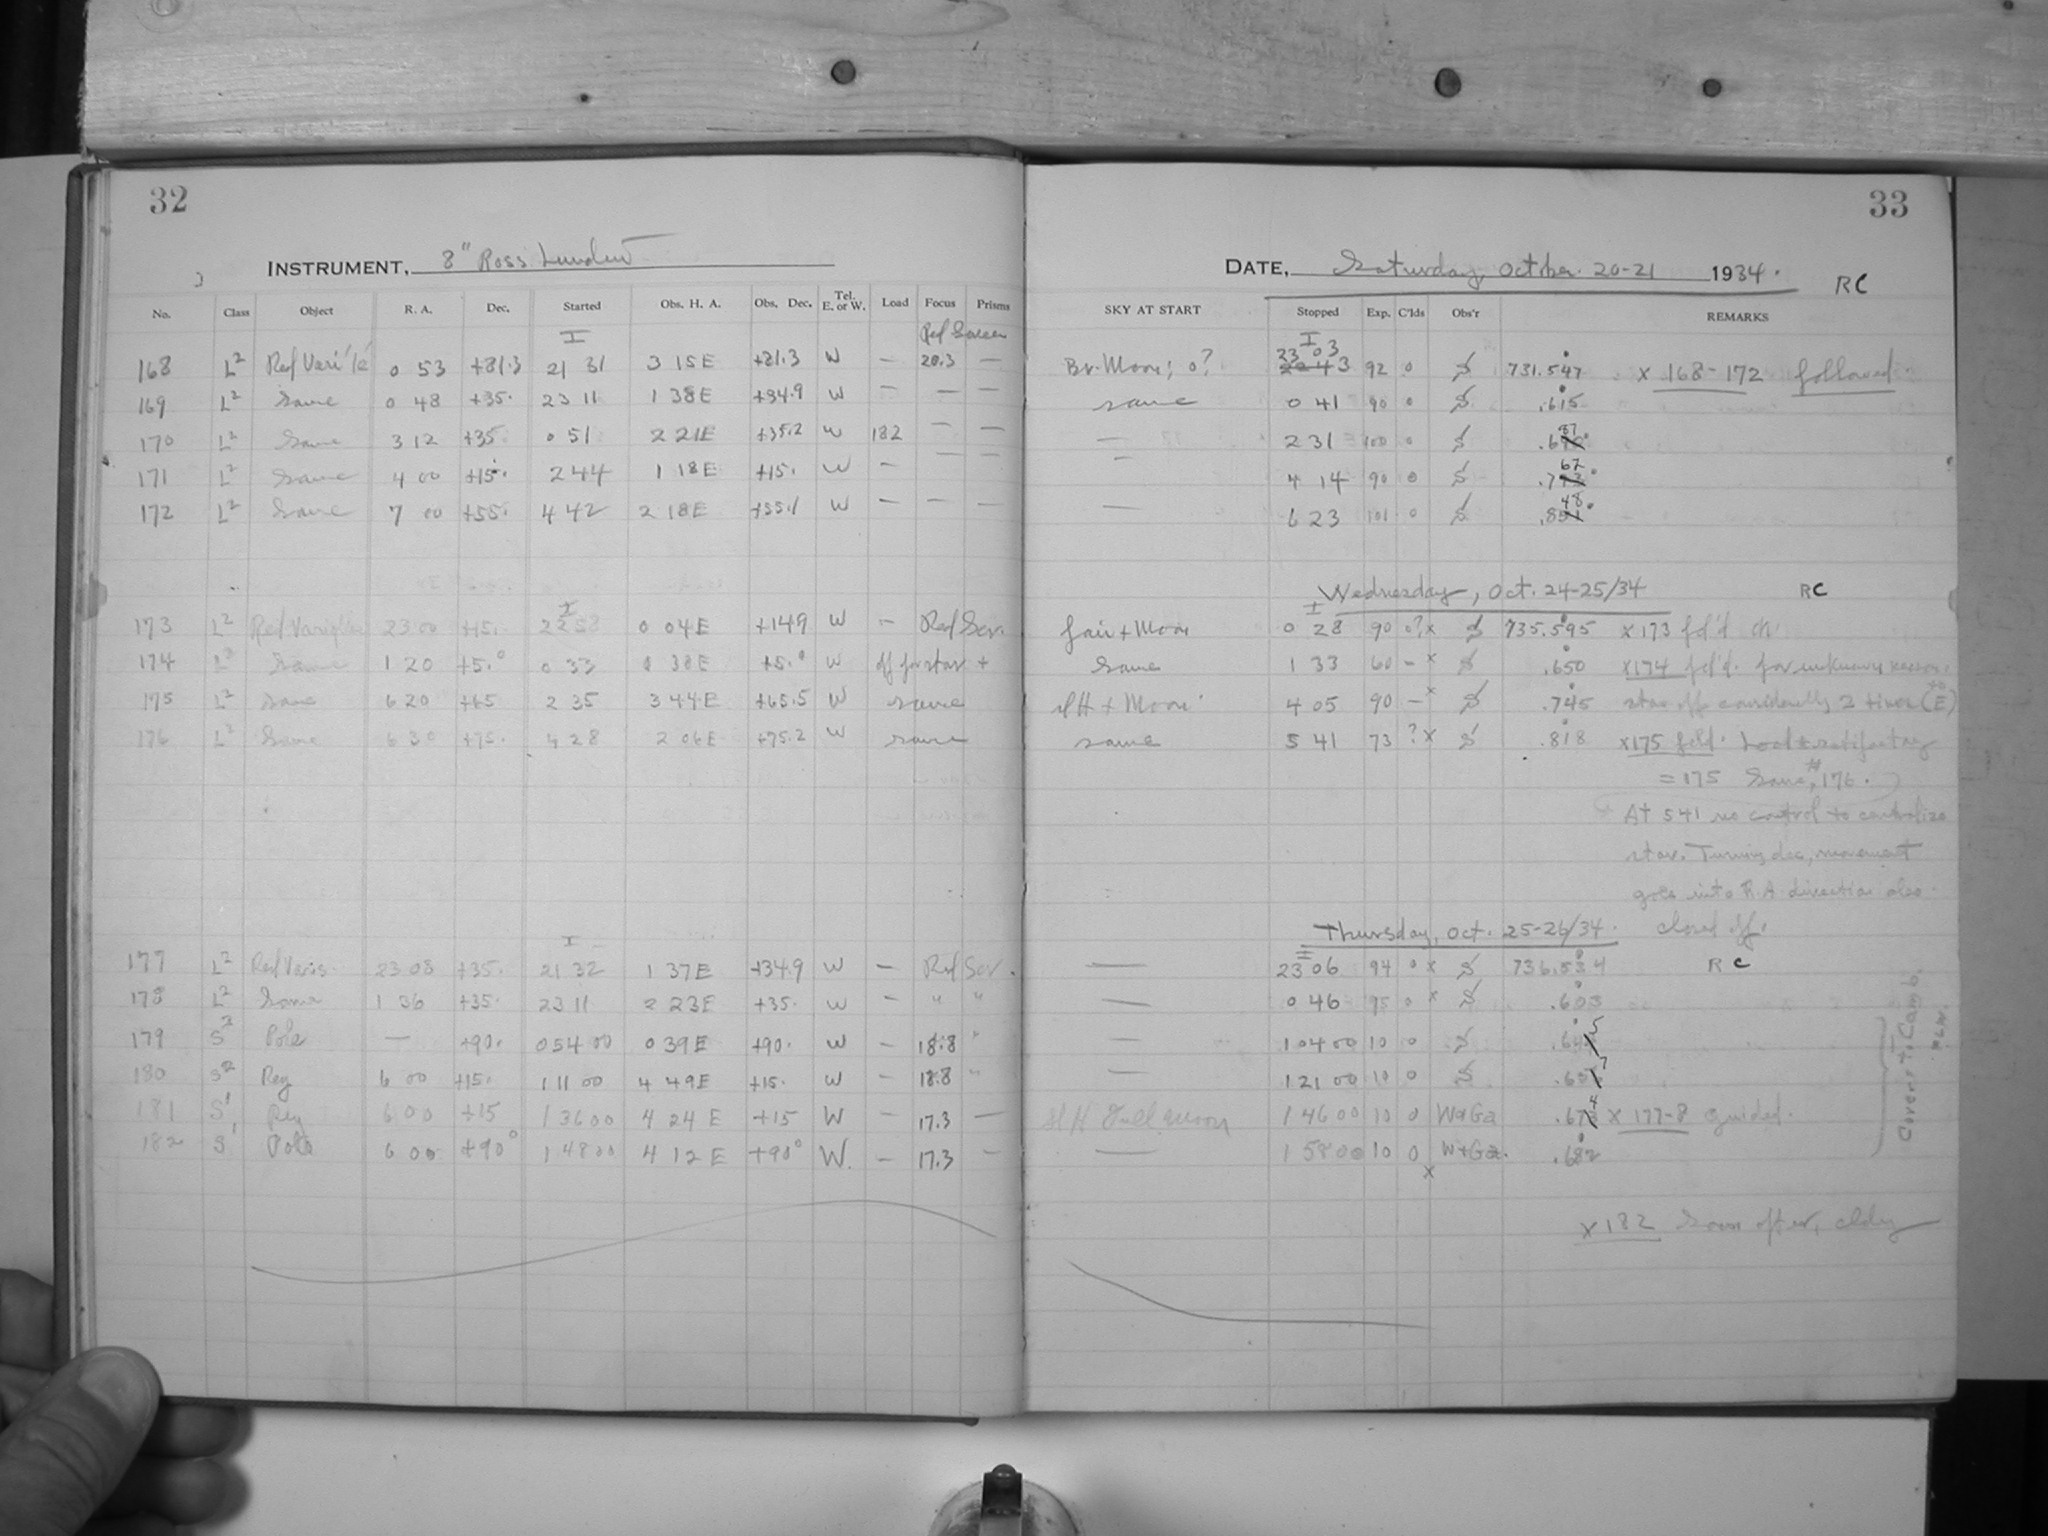 32
INSTRUMENT, 8" Ross Lundin
No. Class Object R. A. Dec. Started Obs. H. A. Obs. Dec. Tel. E. or W. Load Focus Prisms
I Red Screen
168 L² Red Vari'le 0 53 +81.3 21 31 3 15E +81.3 W — 20.3 —
169 L² Same 0 48 +35. 23 11 1 38E +34.9 W — — —
170 L² Same 3 12 +35 0 51 2 21E +35.2 W 182 — —
171 L² Same 4 00 +15. 2 44 1 18E +15. W — — —
172 L² Same 7 00 +55. 4 42 2 18E +55.1 W — — —
I
173 L² Red Variables 23 00 +15. 22 58 0 04E +14.9 W — Red Scr.
174 L² Same 1 20 +5.° 0 33 0 38E +5.° W off for star +
175 L² Same 6 20 +65 2 35 3 44E +65.5 W same
176 L² Same 6 30 +75. 4 28 2 06E +75.2 W same
I
177 L² Red Varis. 23 08 +35. 21 32 1 37E +34.9 W — Red Scr.
178 L² Same 1 36 +35. 23 11 2 23E +35. W — " "
179 S² Pole — +90. 0 54 00 0 39E +90. W — 18.8 "
180 S² Reg 6 00 +15. 1 11 00 4 49E +15. W — 18.8 "
181 S¹ Reg 6 00 +15 1 36 00 4 24 E +15 W — 17.3 —
182 S¹ Pole 6 00 +90° 1 48 00 4 12 E +90° W. — 17.3 —
33
DATE, Saturday, October 20-21 1934. RC
SKY AT START Stopped Exp. C'lds Obs'r REMARKS
I
Br. Moon; 0? 23 03 22 43 92 0 S 731.547 x 168-172 followed
same 0 41 90 0 S .615
— 2 31 100 0 S .6 87
— 4 14 90 0 S .7 67
— 6 23 101 0 S .8 48
Wednesday, Oct. 24-25/34 RC
I
fair + Moon 0 28 90 0? x S 735.595 x 173 fol'd
Same 1 33 60 — x S .650 x 174 fol'd. for unknown reason
SH + Moon 4 05 90 — x S .745 star off considerably 2 times (to E)
same 5 41 73 ? x S .818 x 175 fold. Load satisfactory
= 175 Same, #176.
At 5 41 no control to centralize
star. Turning dec, movement
goes into R A direction also.
closed off.
Thursday, Oct. 25-26/34.
I
— 23 06 94 0 x S 736.534 RC
— 0 46 95 0 x S .603
— 1 04 00 10 0 S .64 5
— 1 21 00 10 0 S .65 7
SH Full Moon 1 46 00 10 0 W+Ga .67 4 x 177-8 guided.
— 1 58 00 10 0 x W+Ga. .682
x 182 Soon after, cldy